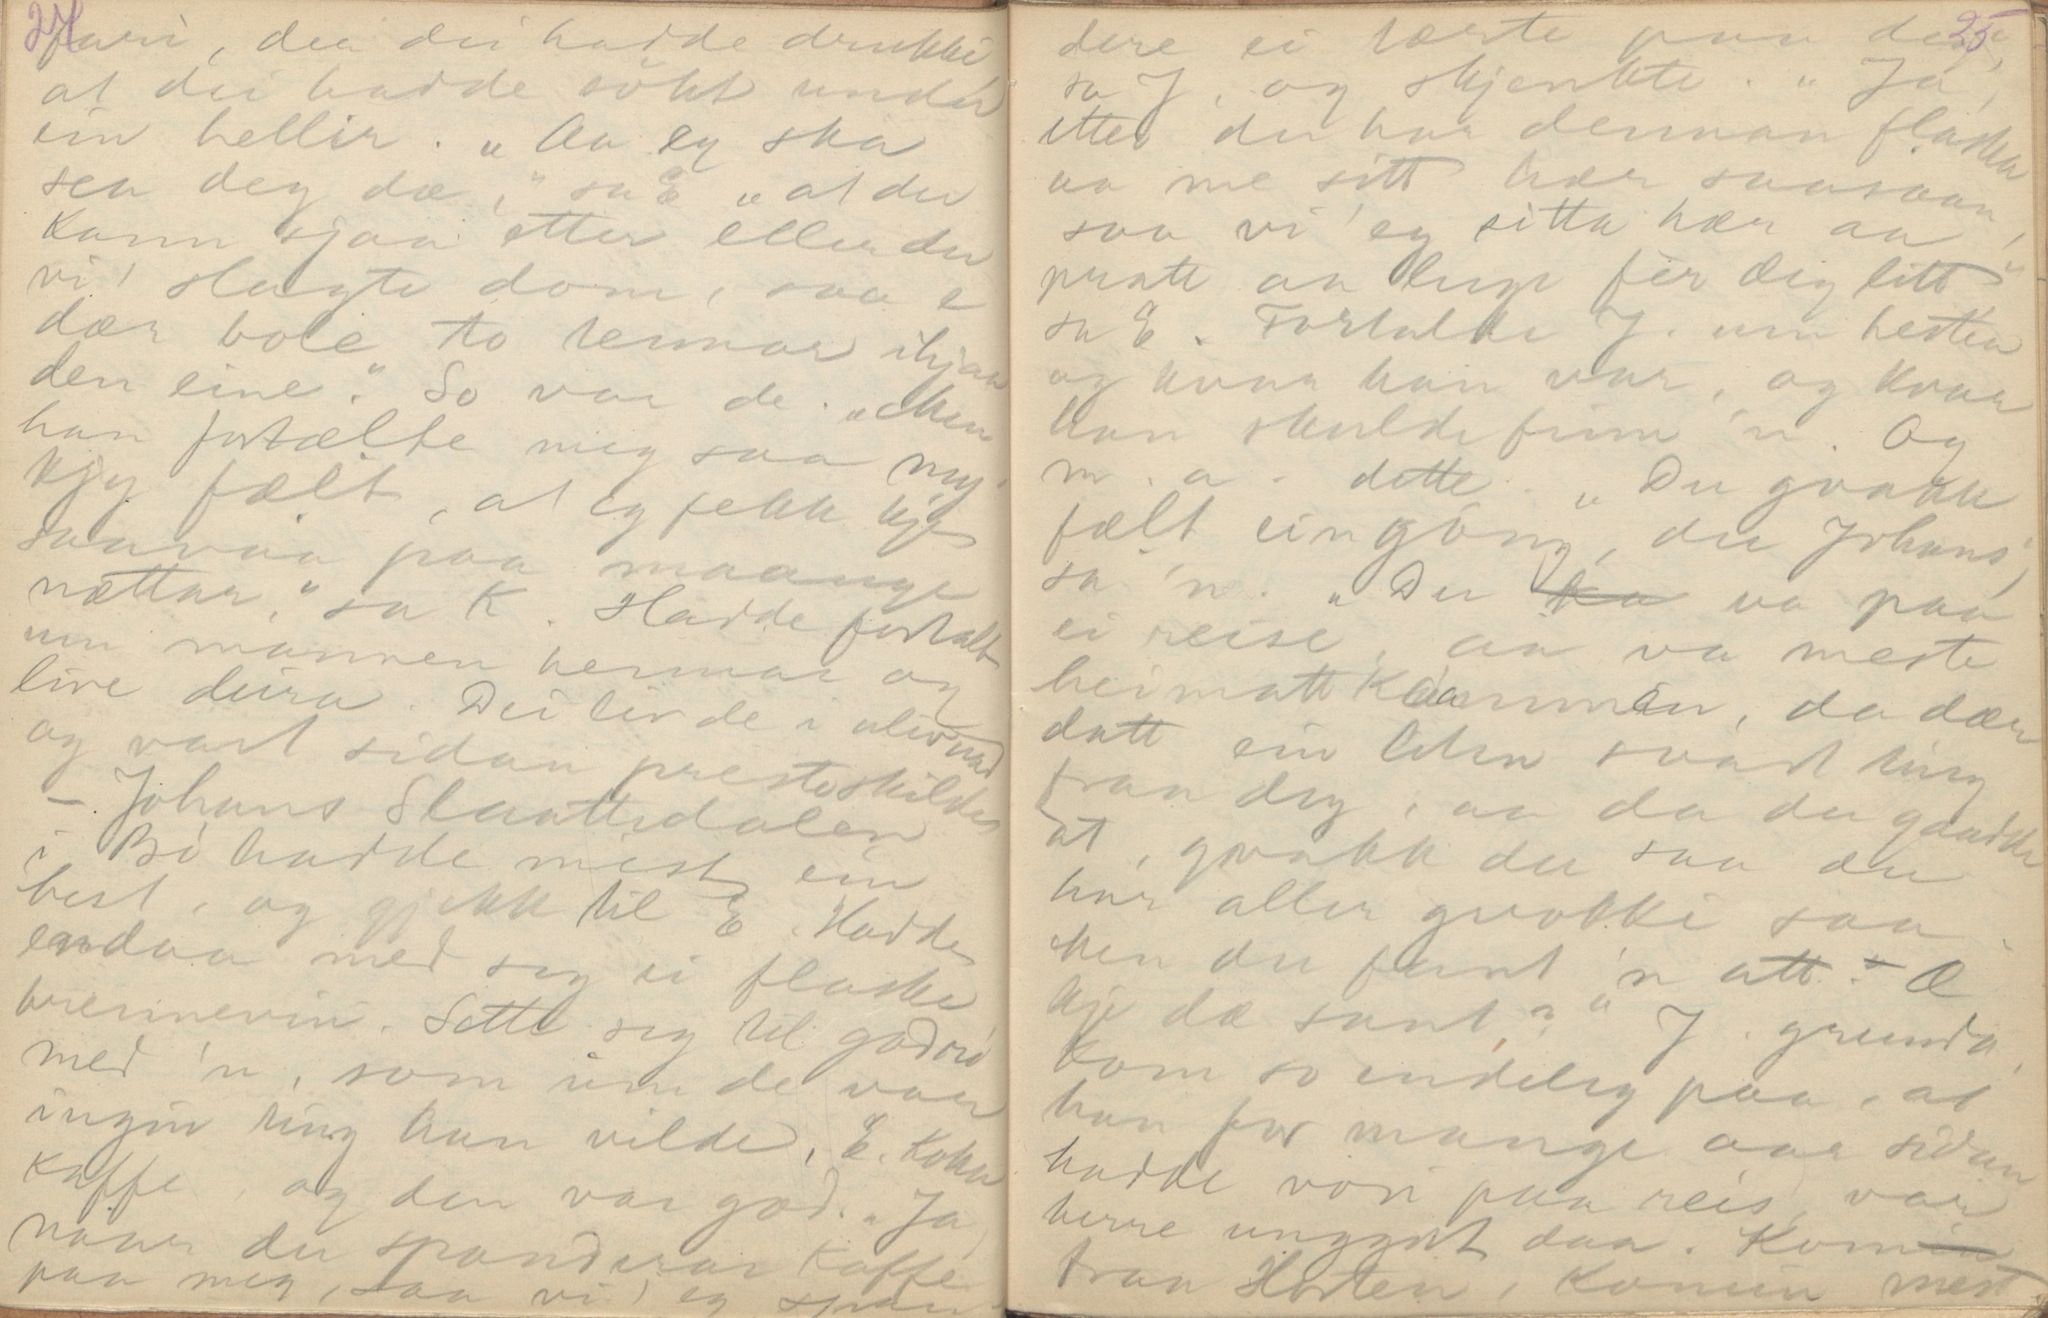 24
fari, daa dei hadde drukki
at dei hadde sökt under
ein hellir. „Aa eg ska
sea deg dæ," sa E „at du
kann sjaa etter eller du
vi' slagte dom, saa e
dær bole to tennar ihjaa
den eine." So var de. „Men
han fortælte meg saa my'
kjy fælt, at eg fekk kje
saavaa paa maange
nættar," sa K. Hadde fortalt
um mannen hennar og
live deira. Dei livde i ulivnad
og vart sidan presteskilde
– Johans Slaattedalen
i Bö hadde mist ein
hest, og gjekk til E. Hadde
endaa med seg ei flaske
brennevin. Sette seg til godro
med 'n, som um de var
ingin ting han vilde, E. koka
kaffe, og den var god. „Ja,
naar du spanderar kaffe
paa meg, saa vi' eg span-
25
dere ei tærte paa deg,"
sa J, og skjenkte. „Ja,
etter du har dennan flaska
aa me sitt hær saasaan,
saa vi' eg sitta hær aa
pratt aa ljuge fer deg litt"
sa E. Fortalde J. um hesten
og kvar han var, og kvar
han skulde finn 'n. Og
m. a. dette. „Du gvakk
fælt eingong, du Johans,"
sa 'n. „Du va paa
ei reise, aa va meste
heimatt kaammen, da dær
datt ein liten svart ting
fraa deg, aa da du gaadde
at, gvakk du saa du
har aller gvokki saa.
Men du fant 'n att. – Æ
kje dæ sant?" J. grunda,
kom so endeleg paa, at
han for mange aar sidan
hadde vori paa reis, var
berre unggut daa. Kom
fraa Horten, komin mest